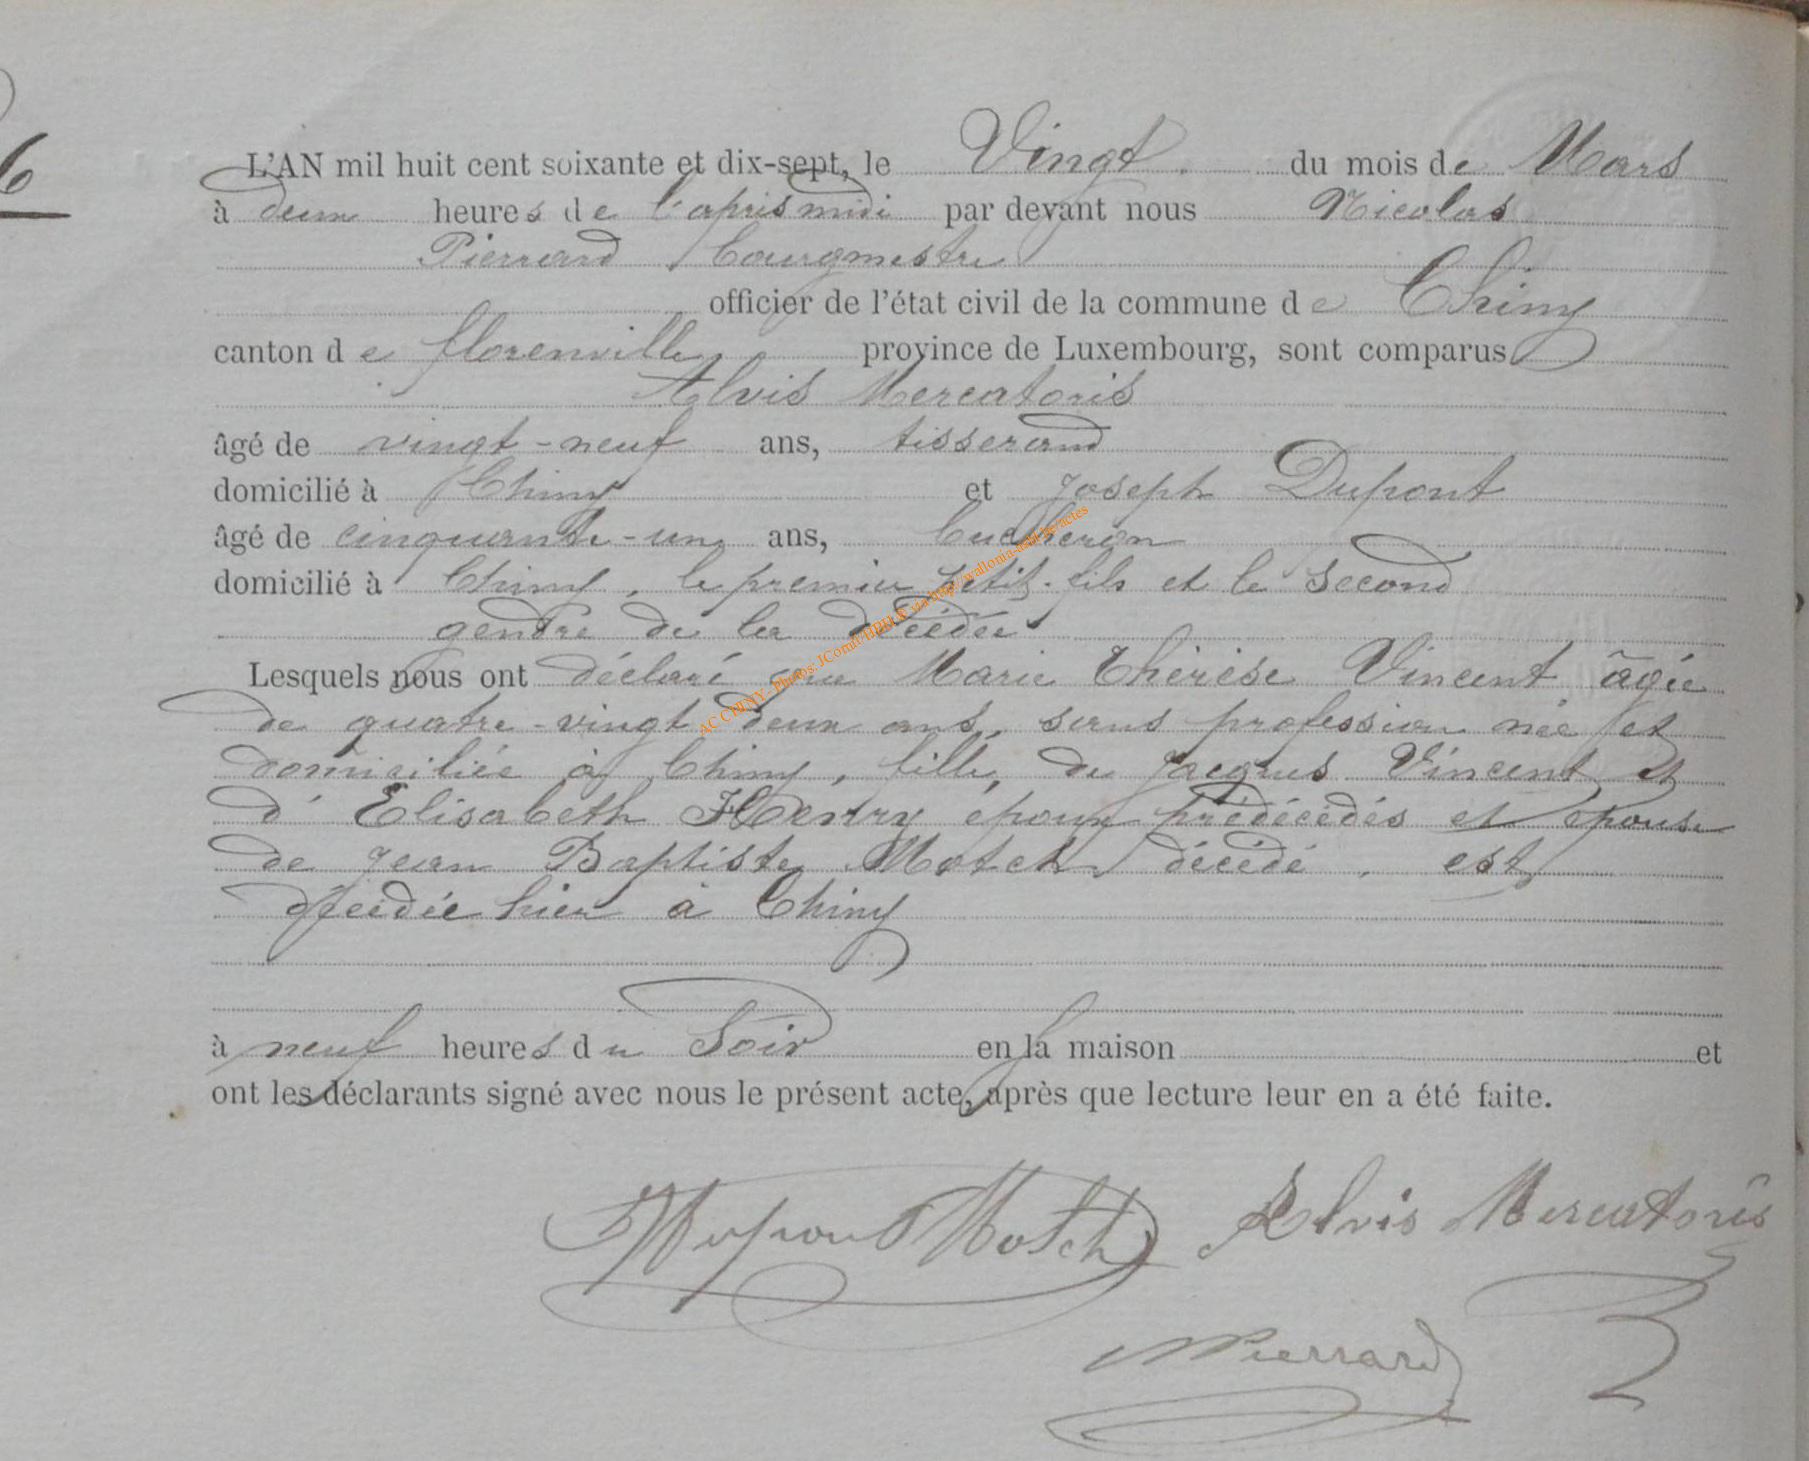 6
L'AN mil huit cent soixante et dix-sept, le Vingt du mois de Mars
à deux heures de l'après midi par devant nous Nicolas
Pierrard, bourgmestre
officier de l'état civil de la commune de Chiny
canton de florenville, province de Luxembourg, sont comparus
Alvis Mercatoris
âgé de vingt-neuf ans, tisserand
domicilié à Chiny et Joseph Dupont
âgé de cinquante-un ans, bucheron
domicilié à Chiny, le premier petit-fils et le second
gendre de la décédée
Lesquels nous ont déclaré que Marie Thérèse Vincent âgée
de quatre-vingt deux ans, sans profession née et
domiciliée à Chiny, fille de Jacques Vincent et
d'Elisabeth Henry époux prédécédés et épouse
de Jean Baptiste Motch, décédé, est
décédée hier à Chiny
à neuf heures du Soir en la maison et
ont les déclarants signé avec nous le présent acte, après que lecture leur en a été faite.
Dupont Motch Alvis Mercatoris
NPierrard
AC CHINY - Photos: JComit/HPHLR via http://wallonia-asbl.be/actes